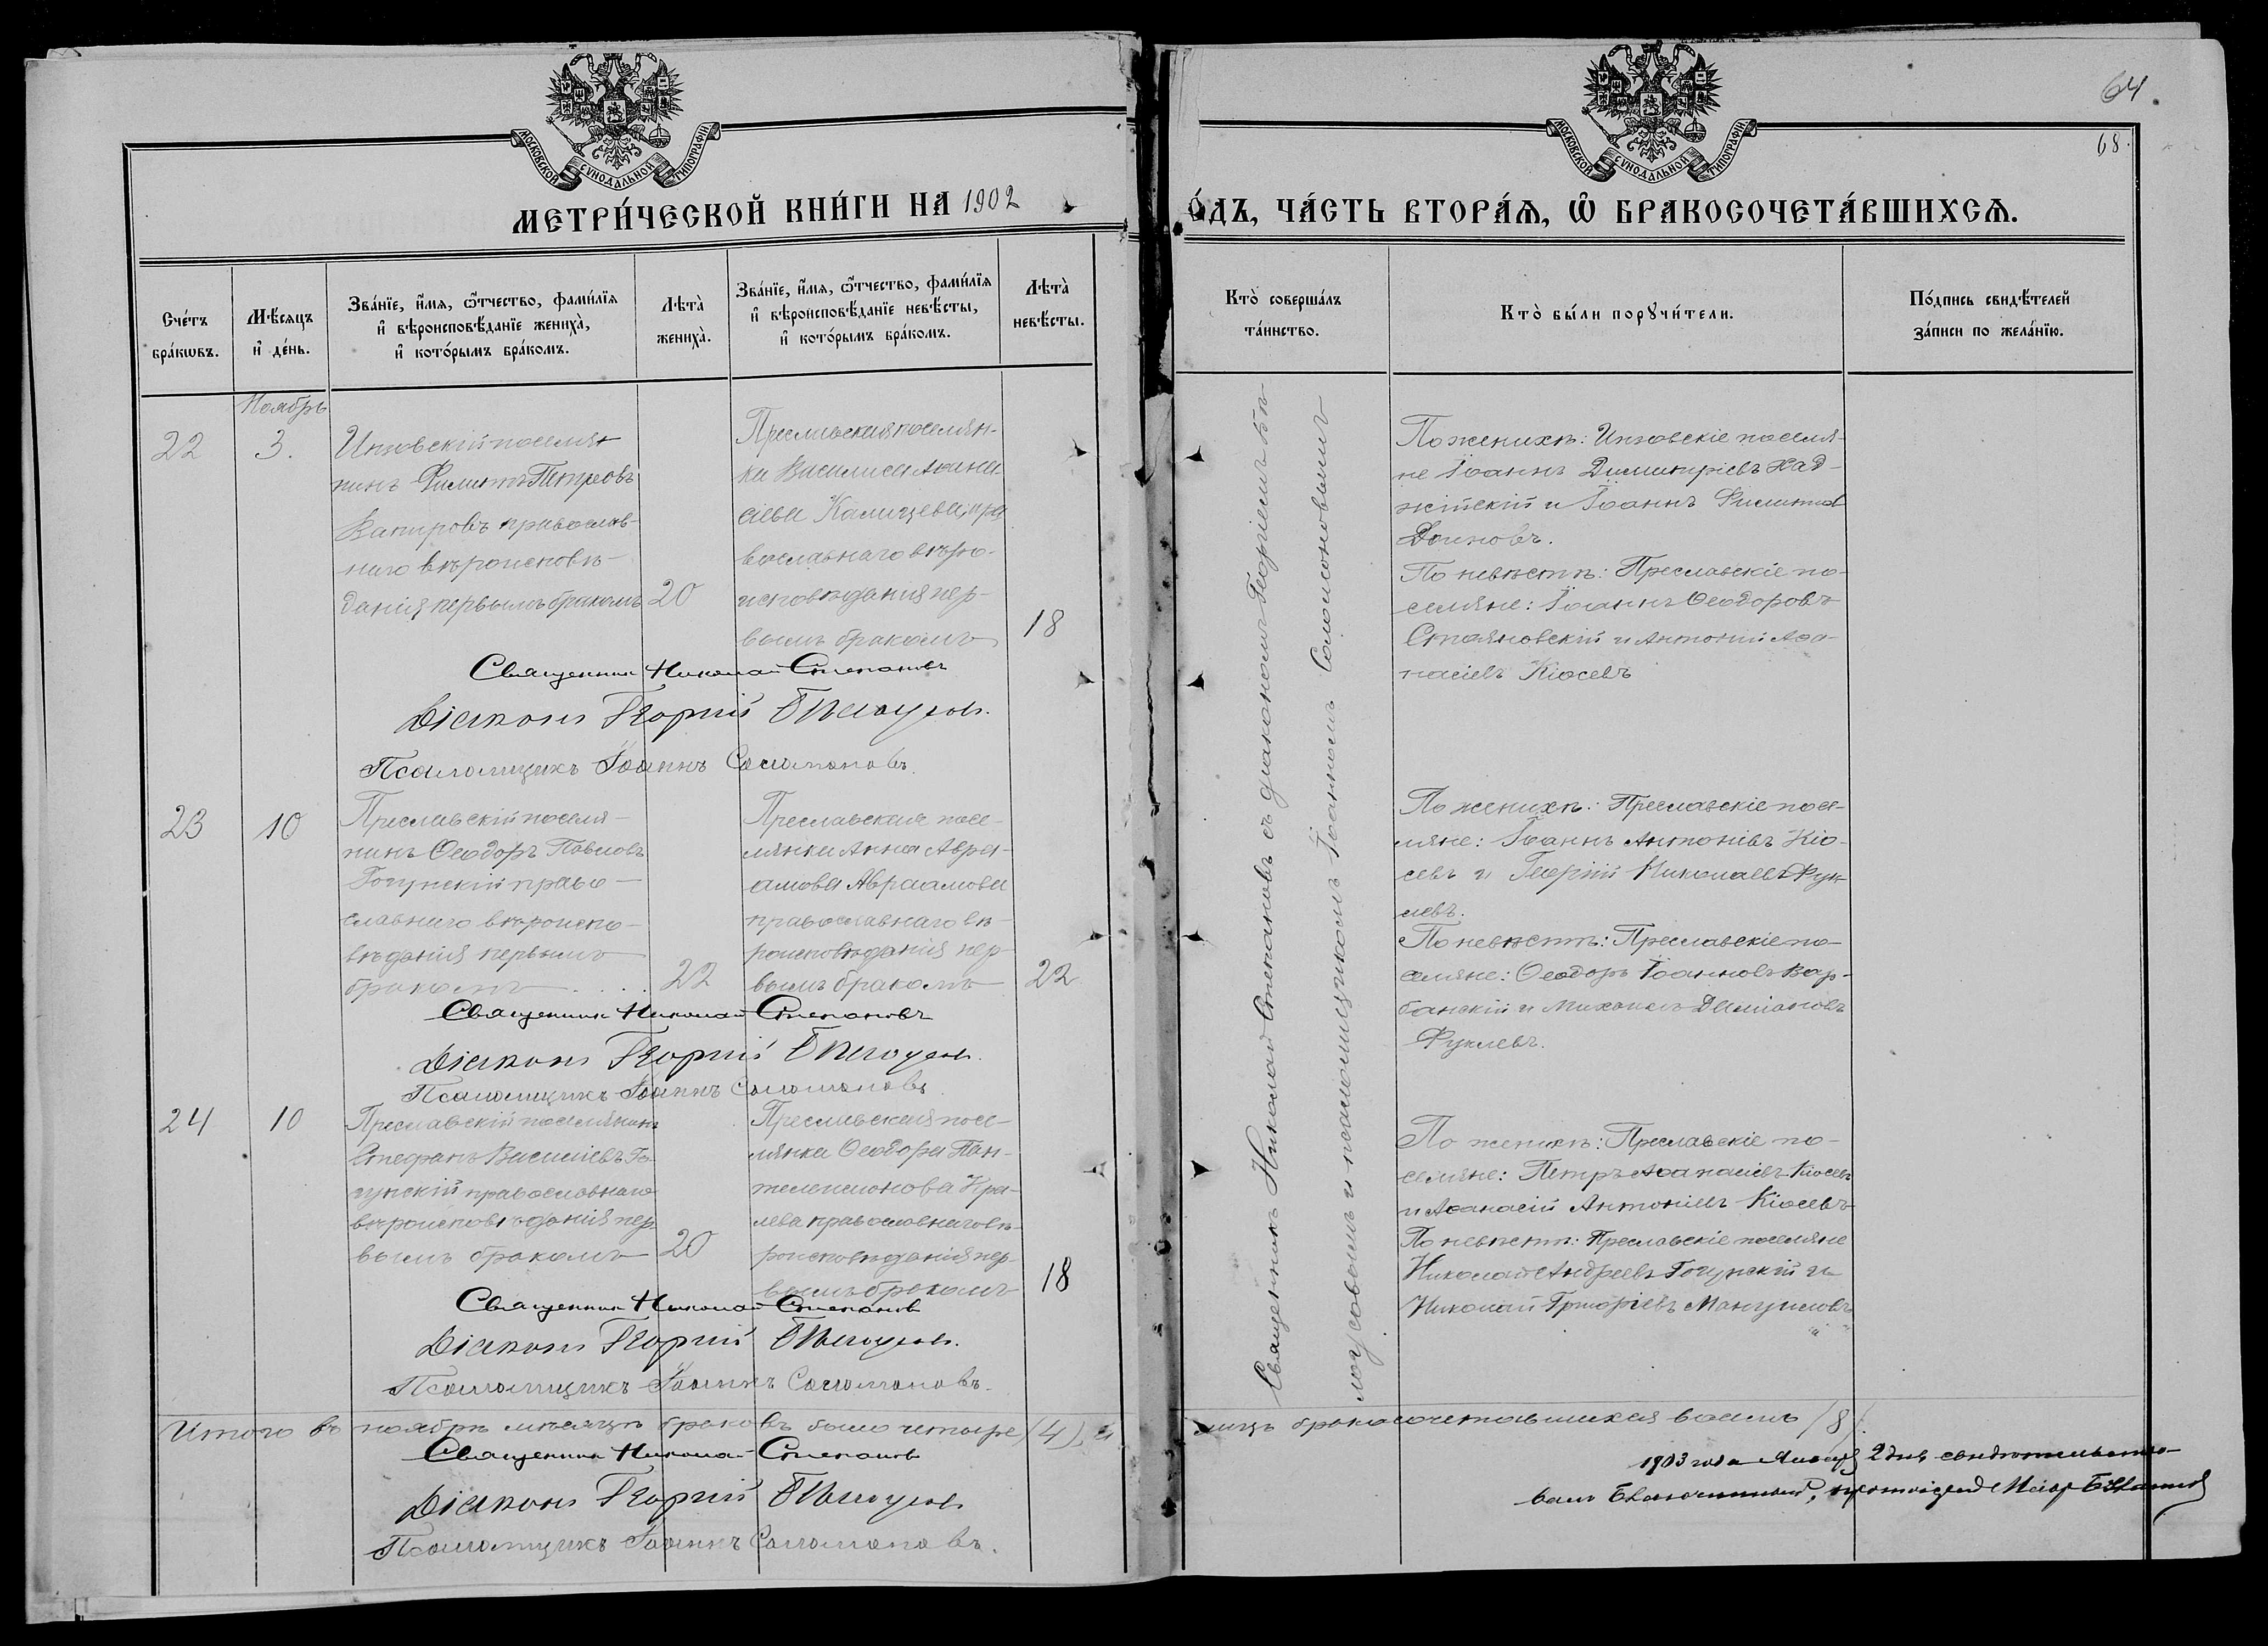 64
68.
МОСКОВСКОЙ СѴНОДАЛЬНОЙ ТИПОГРАФІИ
МОСКОВСКОЙ СѴНОДАЛЬНОЙ ТИПОГРАФІИ
МЕТРИ́ЧЕСКОЙ КНИ́ГИ НА 1902
О́ДЪ, ЧА́СТЬ ВТОРА́Ѧ, Ѽ БРАКОСОЧЕТА́ВШИХСѦ.
Сче́тъ бра́кѡвъ.
Мѣ́сяцъ и҆ де́нь.
Зва́нїе, и҆́мя, ѻ҆́тчество, фами́лїя и҆ вѣроисповѣ́данїе жениха̀, и҆ кото́рымъ бра́комъ.
Лѣта̀ жениха̀.
Зва́нїе, и҆́мя, ѻ҆́тчество, фами́лїя и҆ вѣроисповѣ́данїе невѣ́сты, и҆ кото́рымъ бра́комъ.
Лѣта̀ невѣ́сты.
Кто̀ соверша́лъ та́инство.
Кто̀ бы́ли порꙋчи́тели.
По́дпись свидѣ́телей за́писи по жела́нїю.
Ноябрь
22
3.
Инзовскій поселя-
нинъ Филиппъ Петровъ
Вапировъ православ-
наго вѣроисповѣ-
данія первымъ бракомъ
20
Преславская поселян-
ка Василиса Аѳана
сіева Калицева, пра
вославнаго вѣро-
исповѣданія пер-
вымъ бракомъ
18
По женихѣ: Инзовскіе поселя-
не Іоаннъ Димитріевъ Хад-
жійскій и Іоаннъ Филиппов
Доиновъ.
По невѣстѣ: Преславскіе по-
селяне: Іоаннъ Ѳеодоровъ
Стояновскій и Антоній Аѳа-
насіевъ Кіосевъ
Священникъ Николай Степановъ
Діаконъ Георгій
Псаломщикъ Іоаннъ Соломоновъ
23
10
Преславскій поселя-
нинъ Ѳеодоръ Павловъ
Гогунскій право-
славнаго вѣроиспо-
вѣданія первымъ
бракомъ
22
Преславская посе-
лянка Анна Авра-
амова Авраамова
православнаго вѣ-
роисповѣданія пер-
вымъ бракомъ
22
По женихѣ: Преславскіе посе-
ляне: Іоаннъ Антоніевъ Кіо-
севъ и Георгій Николаевъ Фук
левъ.
По невѣстѣ: Преславскіе по-
селяне: Ѳеодоръ Іоанновъ Вар-
банскій и Михаилъ Даміановъ
Фуклевъ.
Священникъ Николай Степановъ
Діаконъ Георгій
Псаломщикъ Іоаннъ Соломоновъ
24
10
Преславскій поселянинъ
Стефанъ Василіевъ Го-
гунскій православнаго
вѣроисповѣданія пер
вымъ бракомъ
20
Преславская посе-
лянка Ѳеодора Пан-
телеимонова Кра-
лева православнаго вѣ-
роисповѣданія пер-
вымъ бракомъ
18
По женихѣ: Преславскіе по-
селяне: Петръ Аѳанасіевъ Кіосевъ
и Аѳанасій Антоніевъ Кіосевъ
По невѣстѣ: Преславскіе поселяне
Николай Андреевъ Гогунскій и
Николай Григоріевъ Мангуловъ
Священникъ Николай Степановъ
Діаконъ Георгій
Псаломщикъ Іоаннъ Соломоновъ.
Священникъ Николай Степановъ съ діакономъ Георгіемъ Бѣ-
лоусовымъ и псаломщикомъ Іоанномъ Соломоновымъ
Итого въ ноябрѣ мѣсяцѣ браковъ было четыре (4), и лицъ бракосочетавшихся восемь (8).
Священникъ Николай Степановъ
Діаконъ Георгій
Псаломщикъ Іоаннъ Соломоновъ.
1903 года Января 2 дня свидѣтельство-
валъ Благочинный,